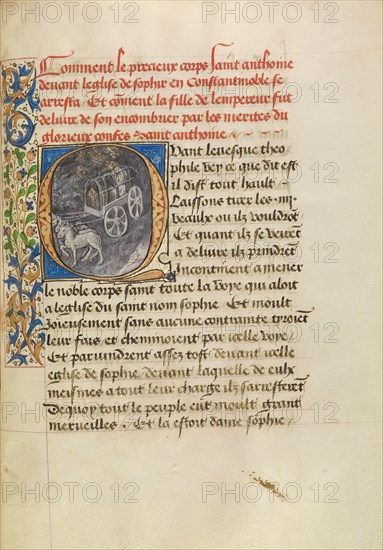 Comment le precieux corps saint anthoine
devant leglise de sophie en Constantinoble se
arresta. Et coment la fille de lempereur fut
delivre de son encombrier par les merites du
glorieux confes saint anthoine
Quant levesque theo
phile vey ce que dit est
il dist tout hault
Laissons tirer les
veaulx ou ilz vouldrot
Et quant ilz se veiret
a delivre ilz prindret
Incontinent a mener
le noble corps saint toute la voye qui aloit
a leglise du saint nom sophie. Et moult
Joieusement sans aucune contrainte tyroient
leur fais et cheminoient par icelle voye
Et parvindrent assez tost devant icelle
eglise de sophie devant laquelle de eulx
meismes a tout leur charge ilz sarresterent
De quoy tout le peuple eut moult grant
merveilles. Et la estoit dame sophie
PHOTO12